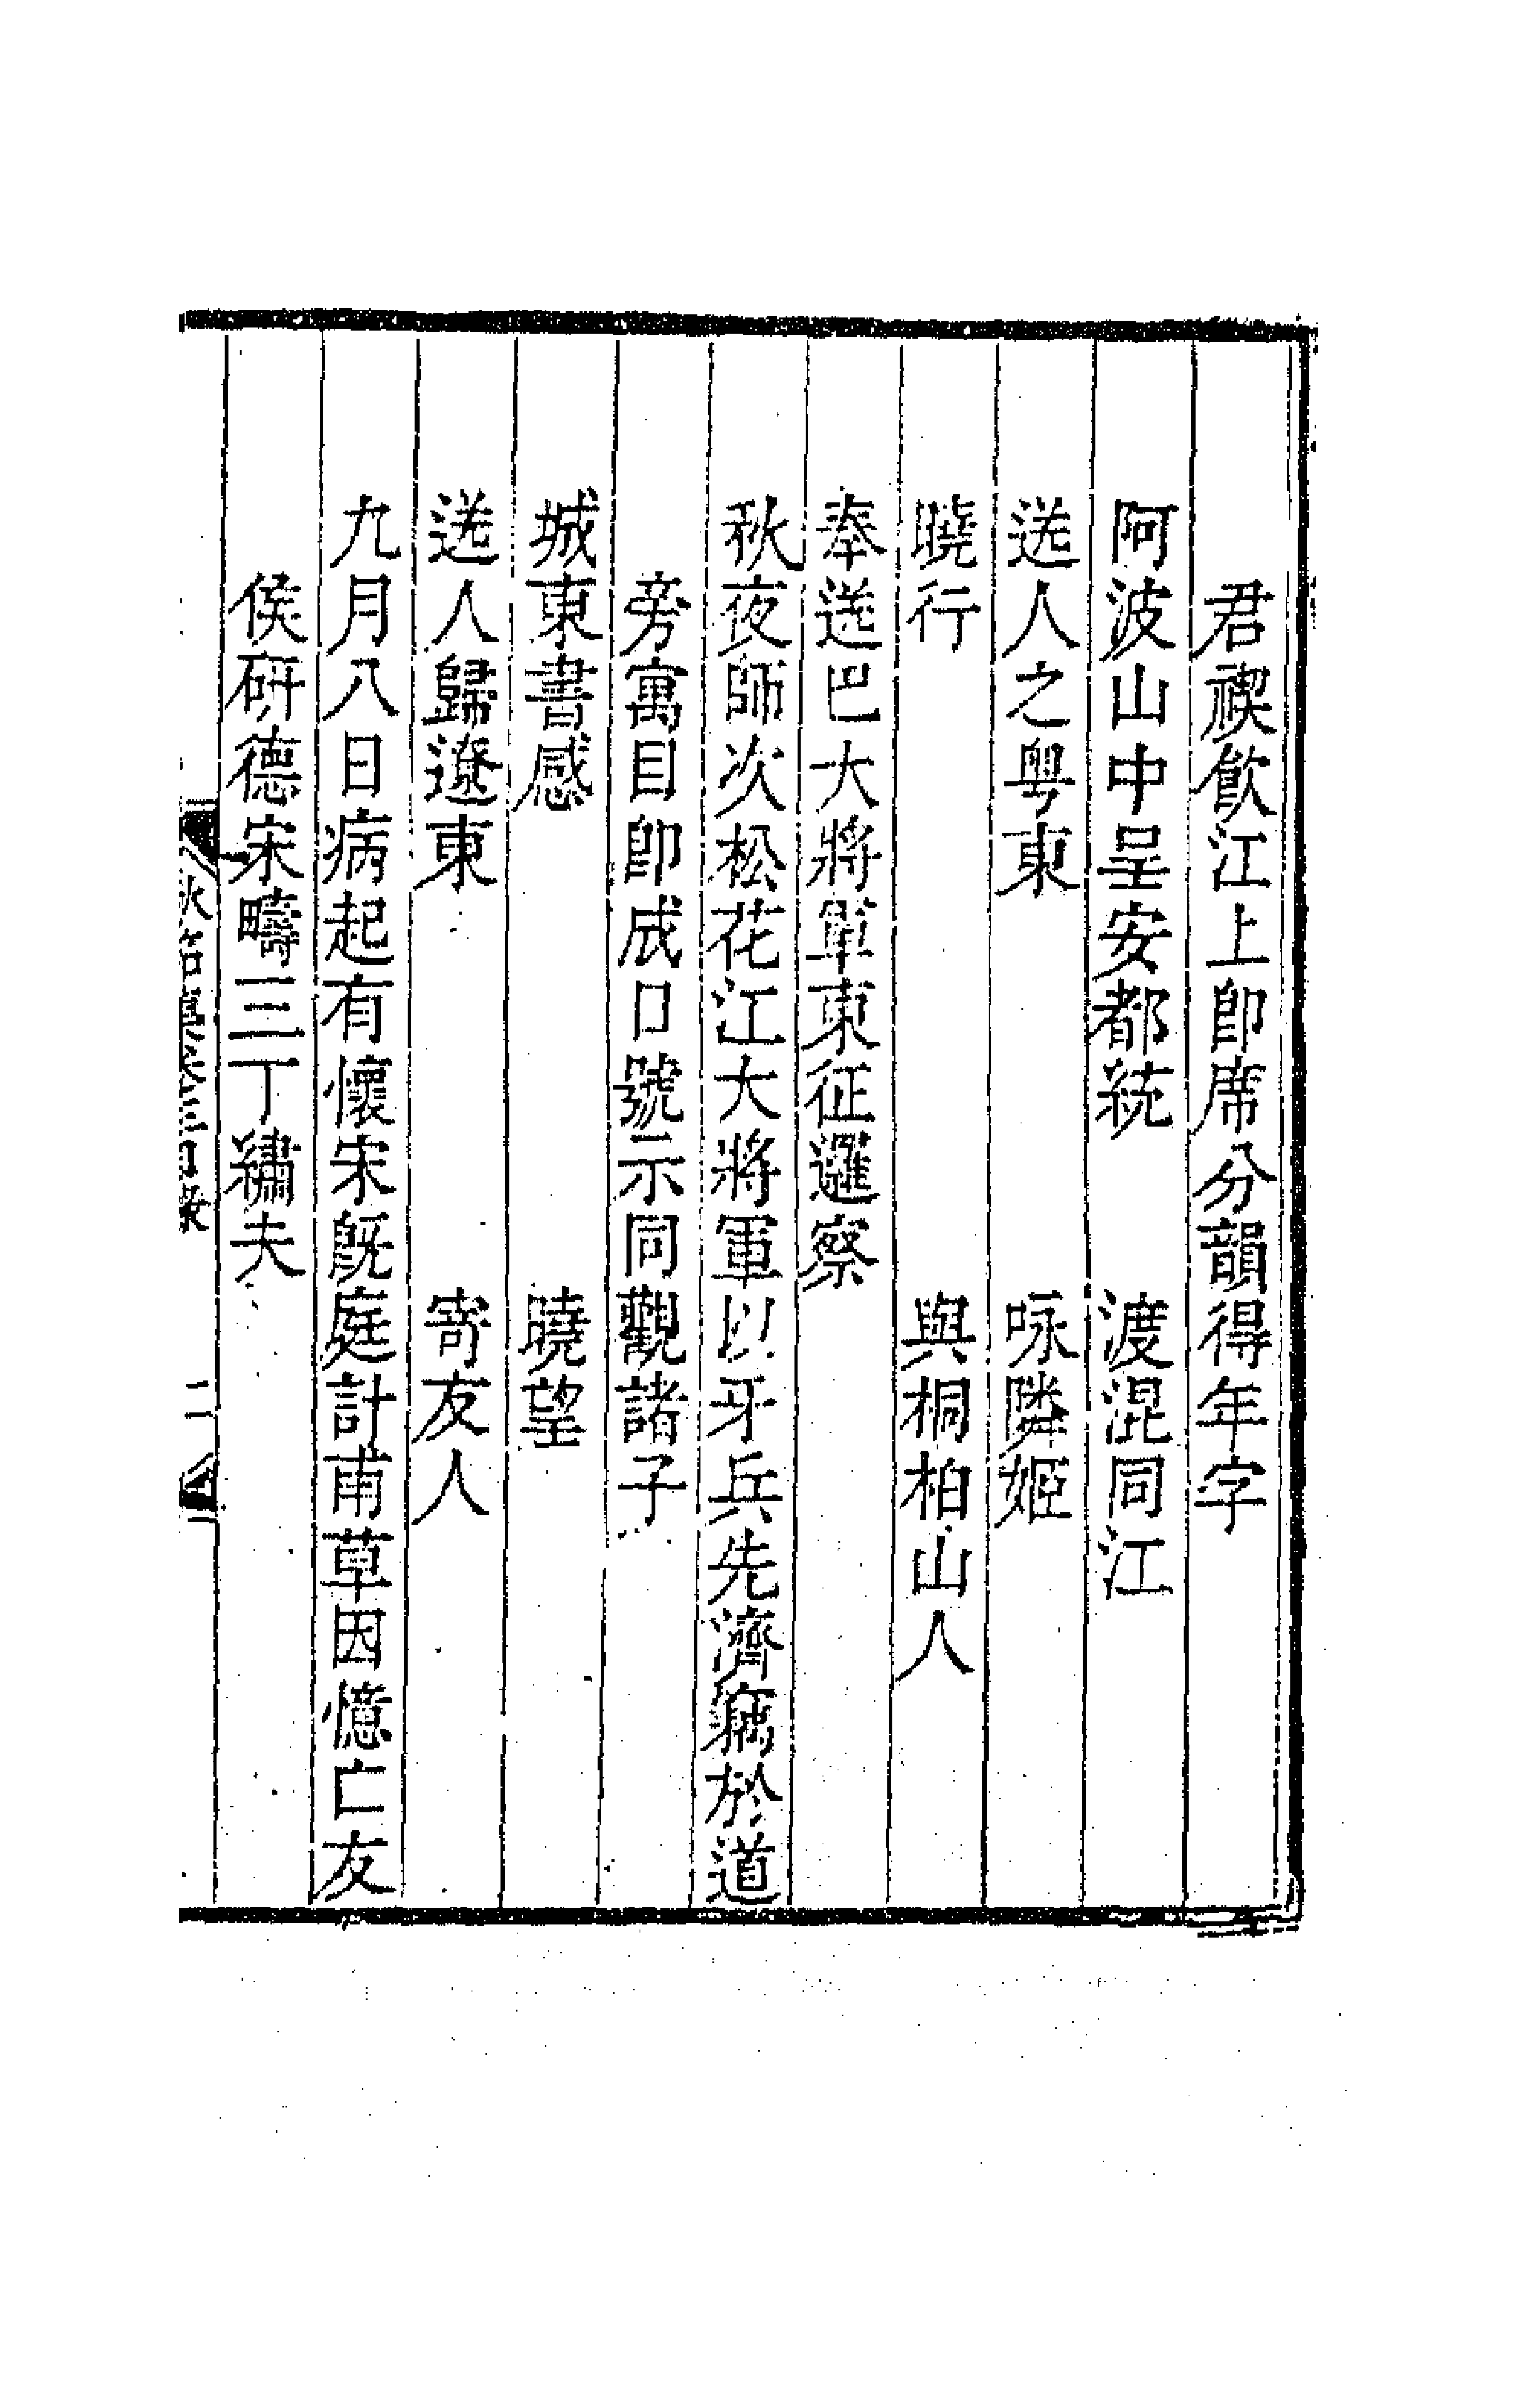 君禊飲江上卽席分韻得年字
阿波山中呈安都統　渡混同江
送人之粤東　咏隣姬
曉行　與桐柏山人
奉送巴大將軍東征邏察
秋夜師次松花江大將軍以牙兵先濟竊於道
旁寓目卽成口號示同觀諸子
城東書感　曉望
送人歸遼東　寄友人
九月八日病起有懷宋旣庭計甫草因憶亡友
侯硏德宋疇三丁繡夫
秋笳集卷三目錄　二